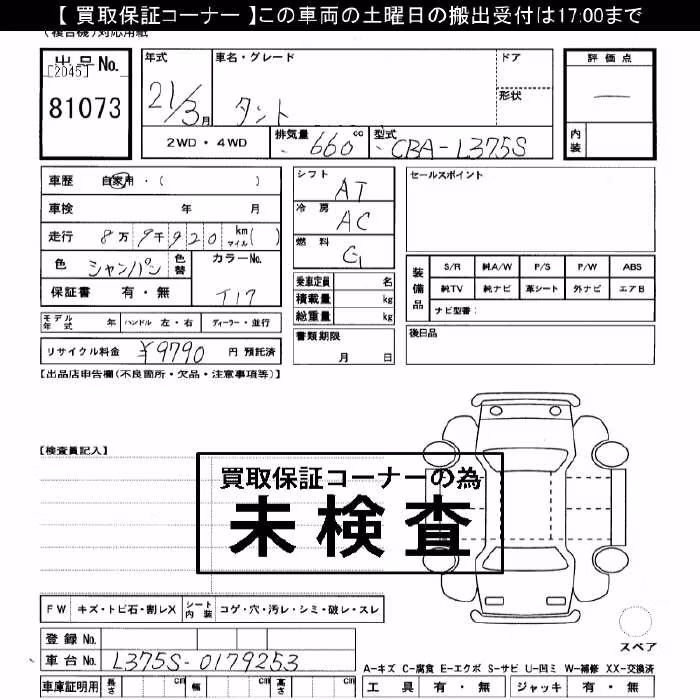 【 買取保証コーナー 】この車両の土曜日の搬出受付は17:00まで
(複合機)対応用紙
出品No.
[2045]
81073
年式 21/3月
車名・グレード タント
ドア
形状
2WD・4WD
排気量 660 cc
型式 CBA-L375S
評価点
―
内装
車歴 自家用・( )
車検 年 月
走行 8万9千920 km マイル( )
色 シャンパン 色替
カラーNo. T17
保証書 有・無
モデル年式 年 ハンドル 左・右 ディーラー・並行
リサイクル料金 ¥9790 円 預託済
シフト AT
冷房 AC
燃料 G
乗車定員 名
積載量 kg
総重量 kg
書類期限
月 日
セールスポイント
装備品
S/R 純A/W P/S P/W ABS
純TV 純ナビ 革シート 外ナビ エアB
ナビ型番:
後日品
【出品店申告欄(不良箇所・欠品・注意事項等)】
【検査員記入】
買取保証コーナーの為
未検査
FW キズ・トビ石・割レX シート内装 コゲ・穴・汚レ・シミ・破レ・スレ
登録No.
車台No. L375S-0179253
車庫証明用 長さ cm 幅 cm 高さ cm
スペア
A-キズ C-腐食 E-エクボ S-サビ U-凹ミ W-補修 XX-交換済
工具 有・無 ジャッキ 有・無